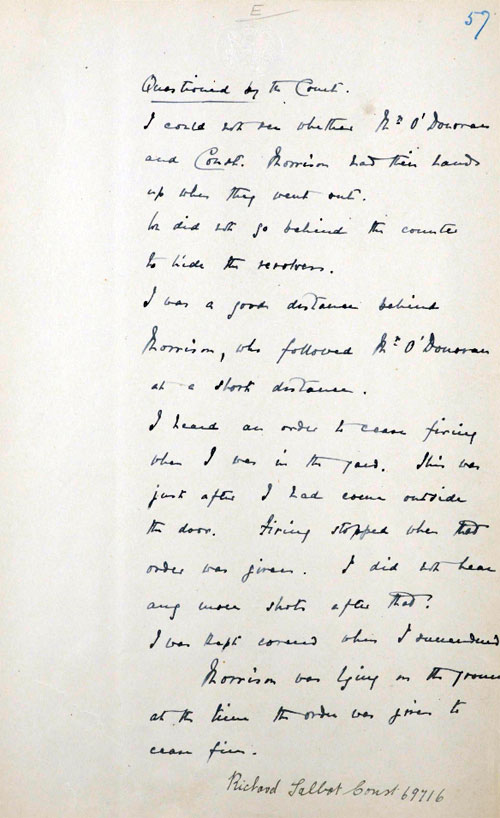 E
57
Questioned by the Court.
I could not see whether Mr O'Donovan
and Const. Morrison had their hands
up when they went out.
We did not go behind the counter
to hide the revolvers.
I was a good distance behind
Morrison, who followed Mr O'Donovan
at a short distance.
I heard an order to cease firing
when I was in the yard. This was
just after I had come outside
the door. Firing stopped when that
order was given. I did not hear
any more shots after that.
I was kept covered when I surrendered
Morrison was lying on the ground
at the time the order was given to
cease fire.
Richard Talbot Const 69716